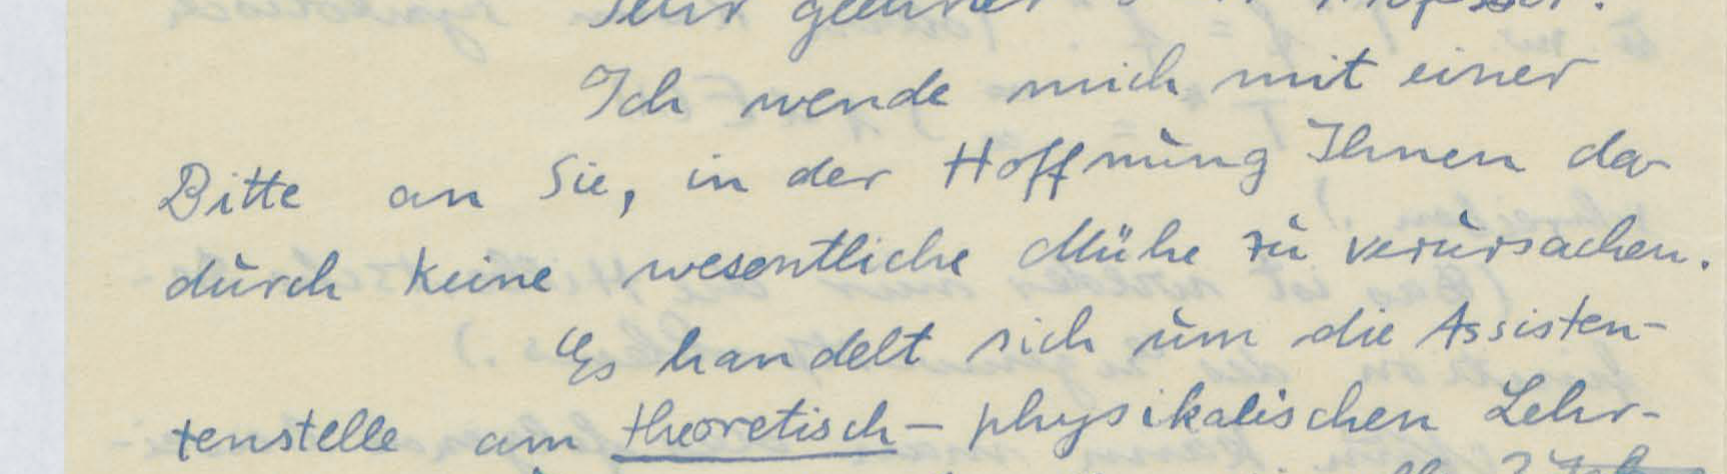 Sehr geehrter Herr Professor!
Ich wende mich mit einer
Bitte an Sie, in der Hoffnung Ihnen da
durch keine wesentliche Mühe zu verursachen.
Es handelt sich um die Assisten-
tenstelle am theoretisch- physikalischen Lehr-